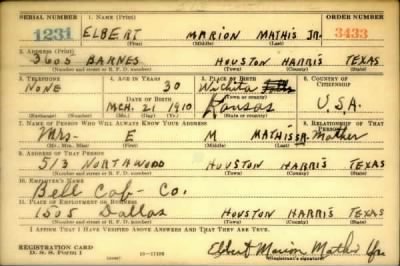 SERIAL NUMBER 1. NAME (Print) ORDER NUMBER
1231 ELBERT MARION MATHIS JR. 3433
(First) (Middle) (Last)
2. ADDRESS (Print)
3605 BARNES HOUSTON HARRIS TEXAS
(Number and street or R. F. D. number) (Town) (County) (State)
3. TELEPHONE 4. AGE IN YEARS 5. PLACE OF BIRTH 6. COUNTRY OF CITIZENSHIP
NONE 30 Wichita
DATE OF BIRTH (Town or county)
MCH. 21 1910 Kansas U.S.A.
(Exchange) (Number) (Mo.) (Day) (Yr.) (State or country)
7. NAME OF PERSON WHO WILL ALWAYS KNOW YOUR ADDRESS 8. RELATIONSHIP OF THAT PERSON
Mrs- E M MATHIS SR. Mother
(Mr., Mrs., Miss) (First) (Middle) (Last)
9. ADDRESS OF THAT PERSON
513 NORTHWOOD HOUSTON HARRIS TEXAS
(Number and street or R. F. D. number) (Town) (County) (State)
10. EMPLOYER'S NAME
Bell Cab- Co.
11. PLACE OF EMPLOYMENT OR BUSINESS
1505 Dallas HOUSTON HARRIS TEXAS
(Number and street or R. F. D. number) (Town) (County) (State)
I AFFIRM THAT I HAVE VERIFIED ABOVE ANSWERS AND THAT THEY ARE TRUE.
REGISTRATION CARD
D. S. S. Form 1 Elbert Marion Mathis Jr.
(Registrant's signature)